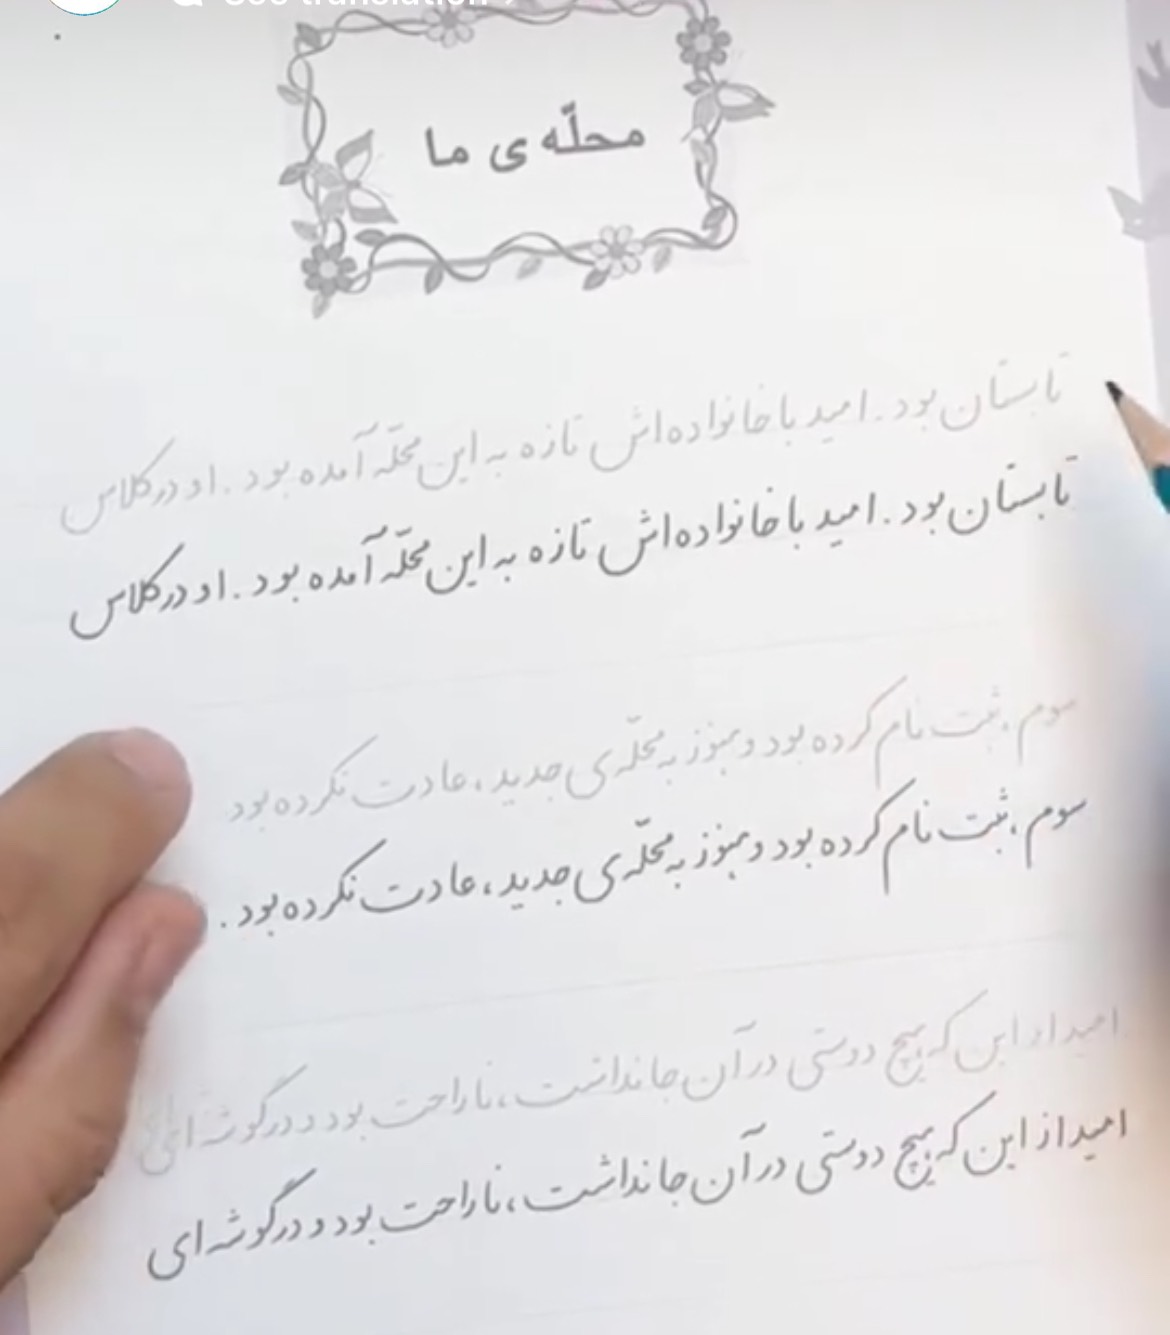 See translation
محلّه ی ما
تابستان بود. امید با خانواده‌اش تازه به این محلّه آمده بود. او در کلاس
تابستان بود. امید با خانواده‌اش تازه به این محلّه آمده بود. او در کلاس
سوم، ثبت نام کرده بود و هنوز به محلّه‌ی جدید، عادت نکرده بود
سوم، ثبت نام کرده بود و هنوز به محلّه‌ی جدید، عادت نکرده بود.
امید از این که هیچ دوستی در آن جا نداشت، ناراحت بود و در گوشه‌ای
امید از این که هیچ دوستی در آن جا نداشت، ناراحت بود و در گوشه‌ای